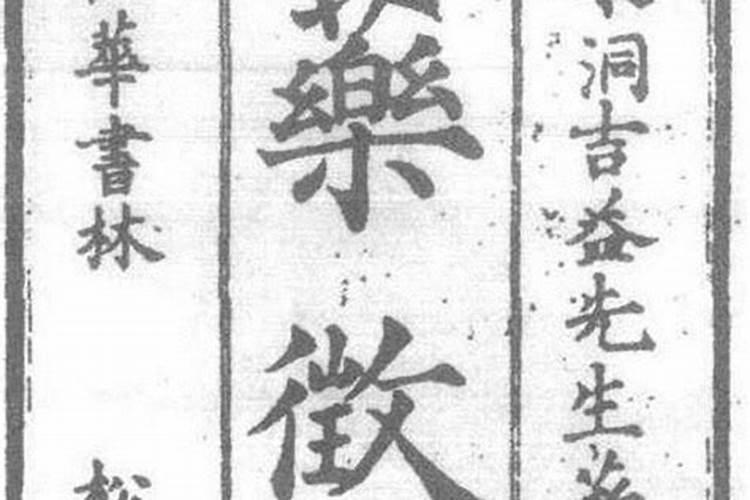 洞吉益先生
樂徴
華書林 松